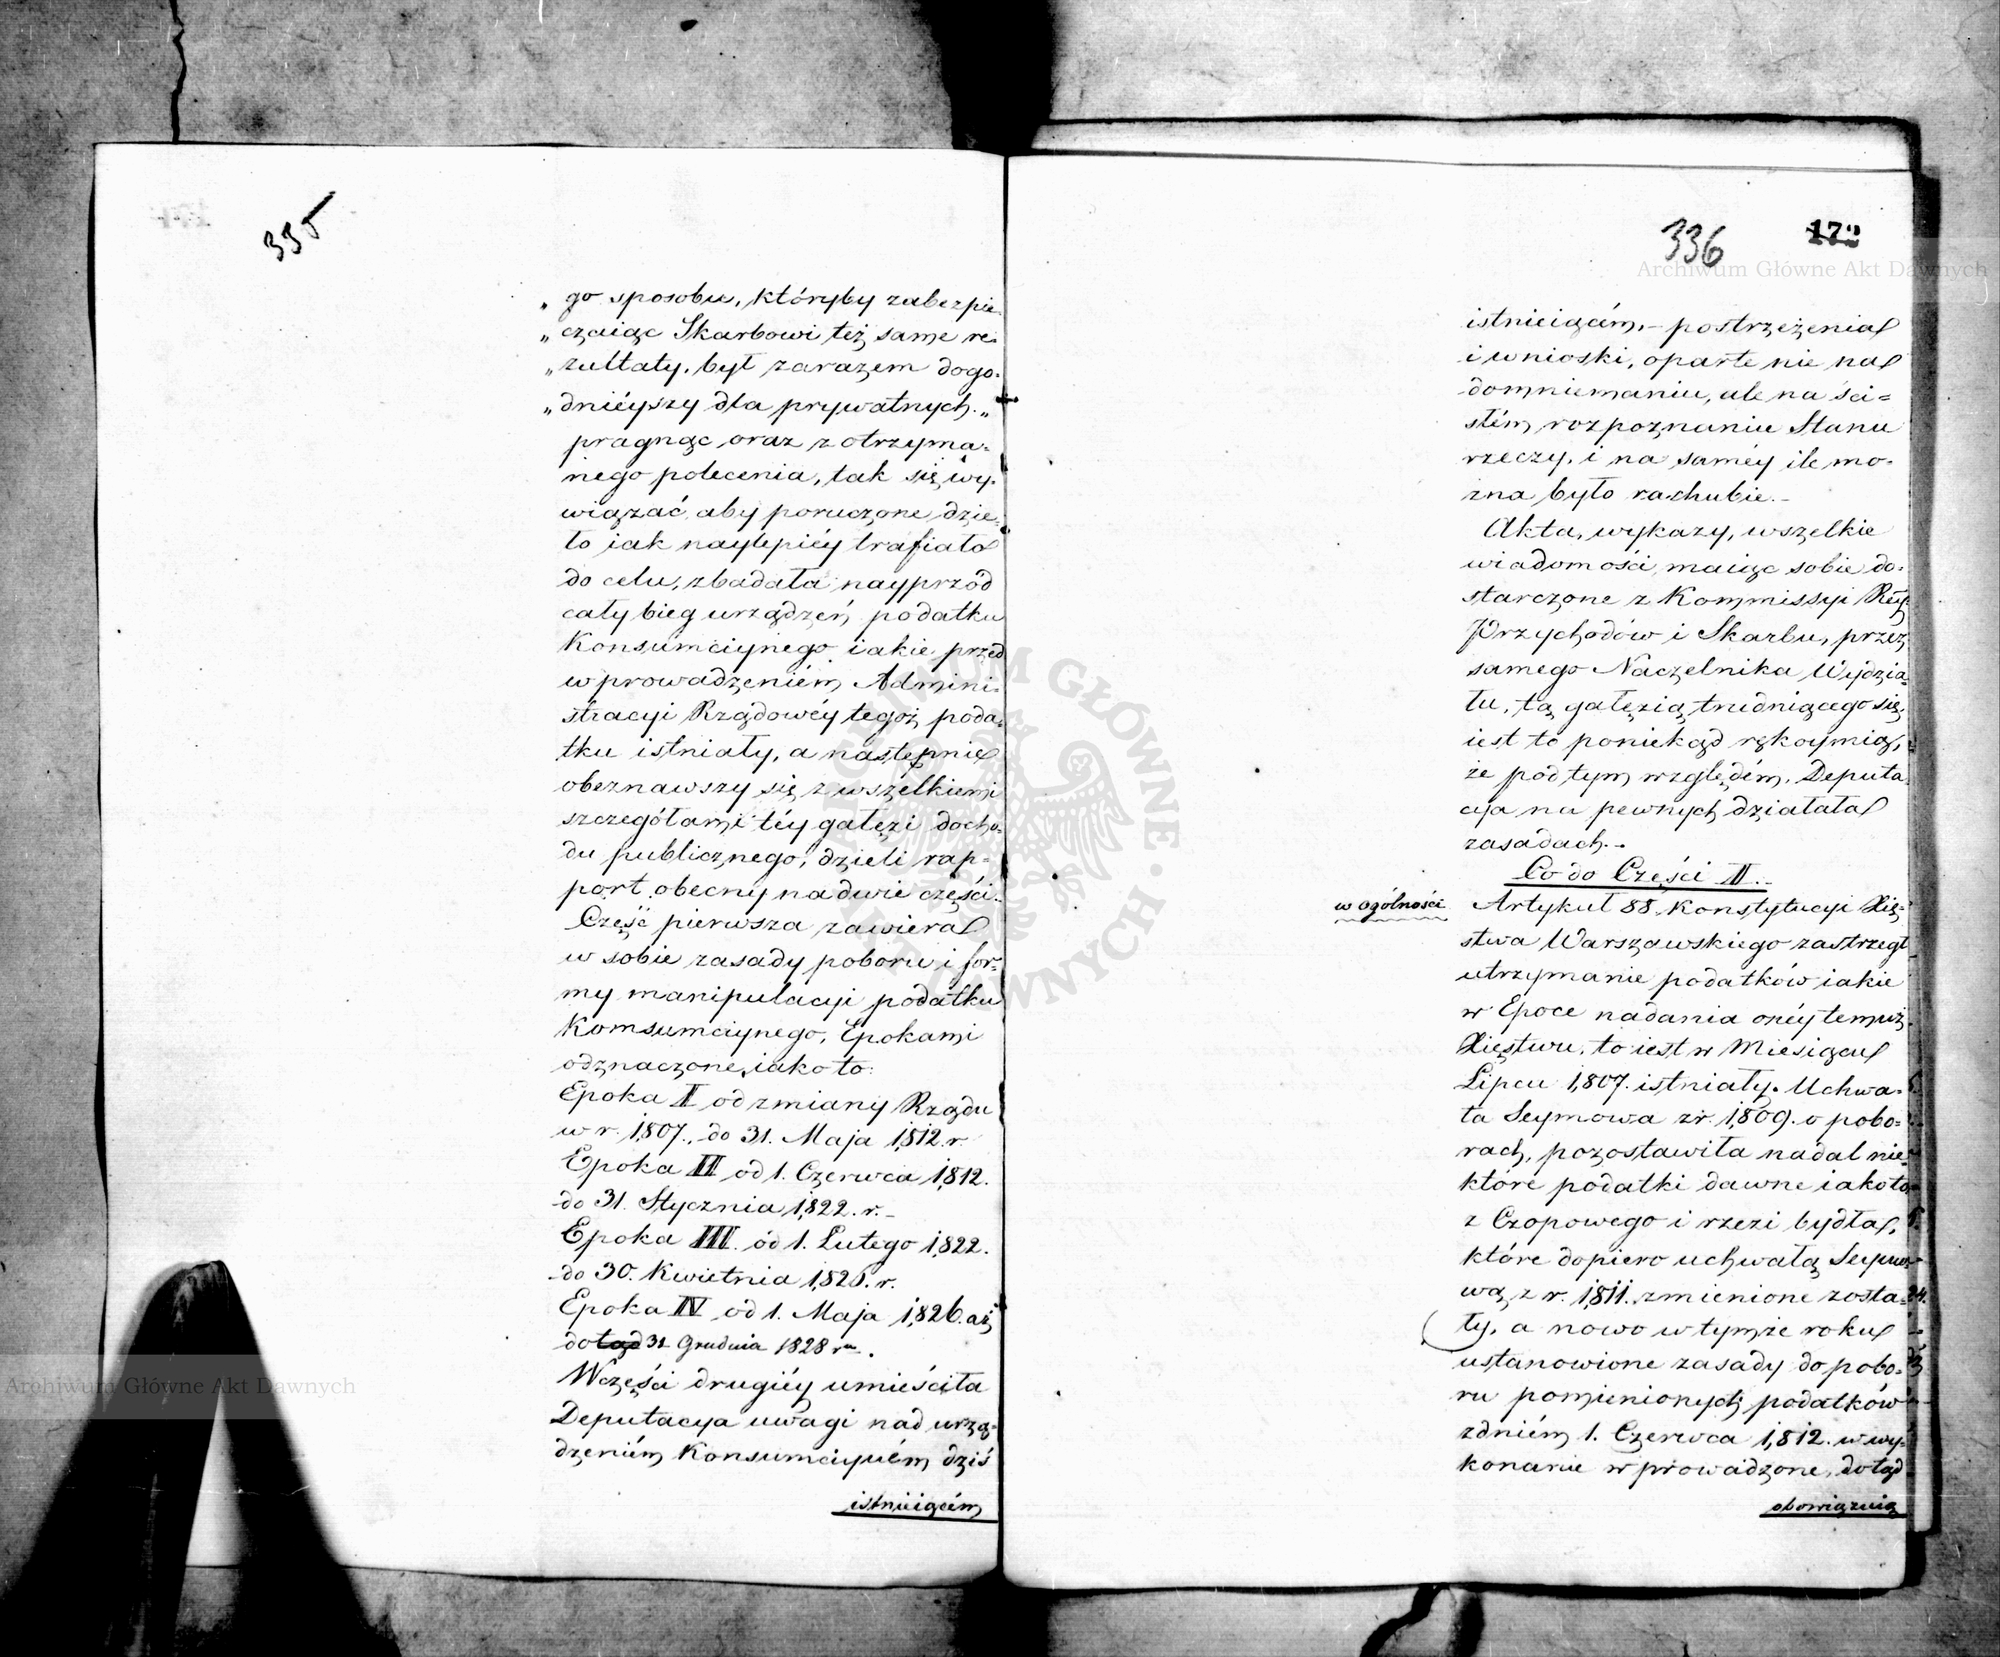 335
„ go sposobu, któryby zabezpie-
„ czaiąc Skarbowi też same re-
„ zultaty, był zarazem dogo-
„ dnieyszy dla prywatnych.„
pragnąc oraz z otrzyma-
nego polecenia, tak się wy-
wiązać, aby poruczone dzie-
ło iak naylepiéy trafiało
do celu, zbadała nayprzód
cały bieg urządzeń podatku
Konsumciynego iakie przed
wprowadzeniém Admini-
stracyi Rządowéy tegoż poda-
tku istniały, a następnie
obeznawszy się z wszelkiemi
szczegółami téy gałęzi docho-
du publicznego, dzieli rap-
port obecny na dwie części.
Część pierwsza zawiera
w sobie zasady poboru i for-
my manipulacyi podatku
Komsumciynego, Epokami
odznaczone, iako to:
Epoka I od zmiany Rządu
w r. 1,807., do 31. Maja 1,812. r.
Epoka II od 1. Czerwca 1,812.
do 31. Stycznia 1,822. r.-
Epoka III. od 1. Lutego 1,822.
do 30. Kwietnia 1,826. r.
Epoka IV od 1. Maja 1,826. aż
dotąd 31 Grudnia 1828 r.
W części drugiéy umieściła
Deputacya uwagi nad urzą-
dzeniém Konsumciyném dziś
istnieiącém
336 172
istnieiącém,- postrzeżenia
i wnioski, oparte nie na
domniemaniu, ale na ści=
słém rozpoznaniu Stanu
rzeczy, i na saméy ile mo-
żna było rachubie.-
Akta, wykazy, wszelkie
wiadomości, maiąc sobie do-
starczone z Kommissyi Rząd.
Przychodów i Skarbu, przez
samego Naczelnika Wydzia-
łu, tą gałęzią trudniącego się,
iest to poniekąd rękoymią,
że pod tym względém, Deputa-
cya na pewnych działała
zasadach.-
Co do Części II.-
w ogólności
Artykuł 88. Konstytucyi Xię-
stwa Warszawskiego zastrzegł
utrzymanie podatków iakie
w Epoce nadania onéy temuż
Xięstwu, to iest w Miesiącu
Lipcu 1,807. istniały. Uchwa-
ła Seymowa z r. 1,809. o pobo-
rach, pozostawiła nadal nie-
które podatki dawne iako to
z Czopowego i rzezi bydła,
które dopiero uchwałą Seymo-
wą z r. 1,811. zmienione zosta-
ły, a nowo w tymże roku
ustanowione zasady do pobo-
ru pomienionych podatków
z dniém 1. Czerwca 1,812. w wy-
konanie wprowadzone, dotąd
obowiązuią
Archiwum Główne Akt Dawnych
Archiwum Główne Akt Dawnych